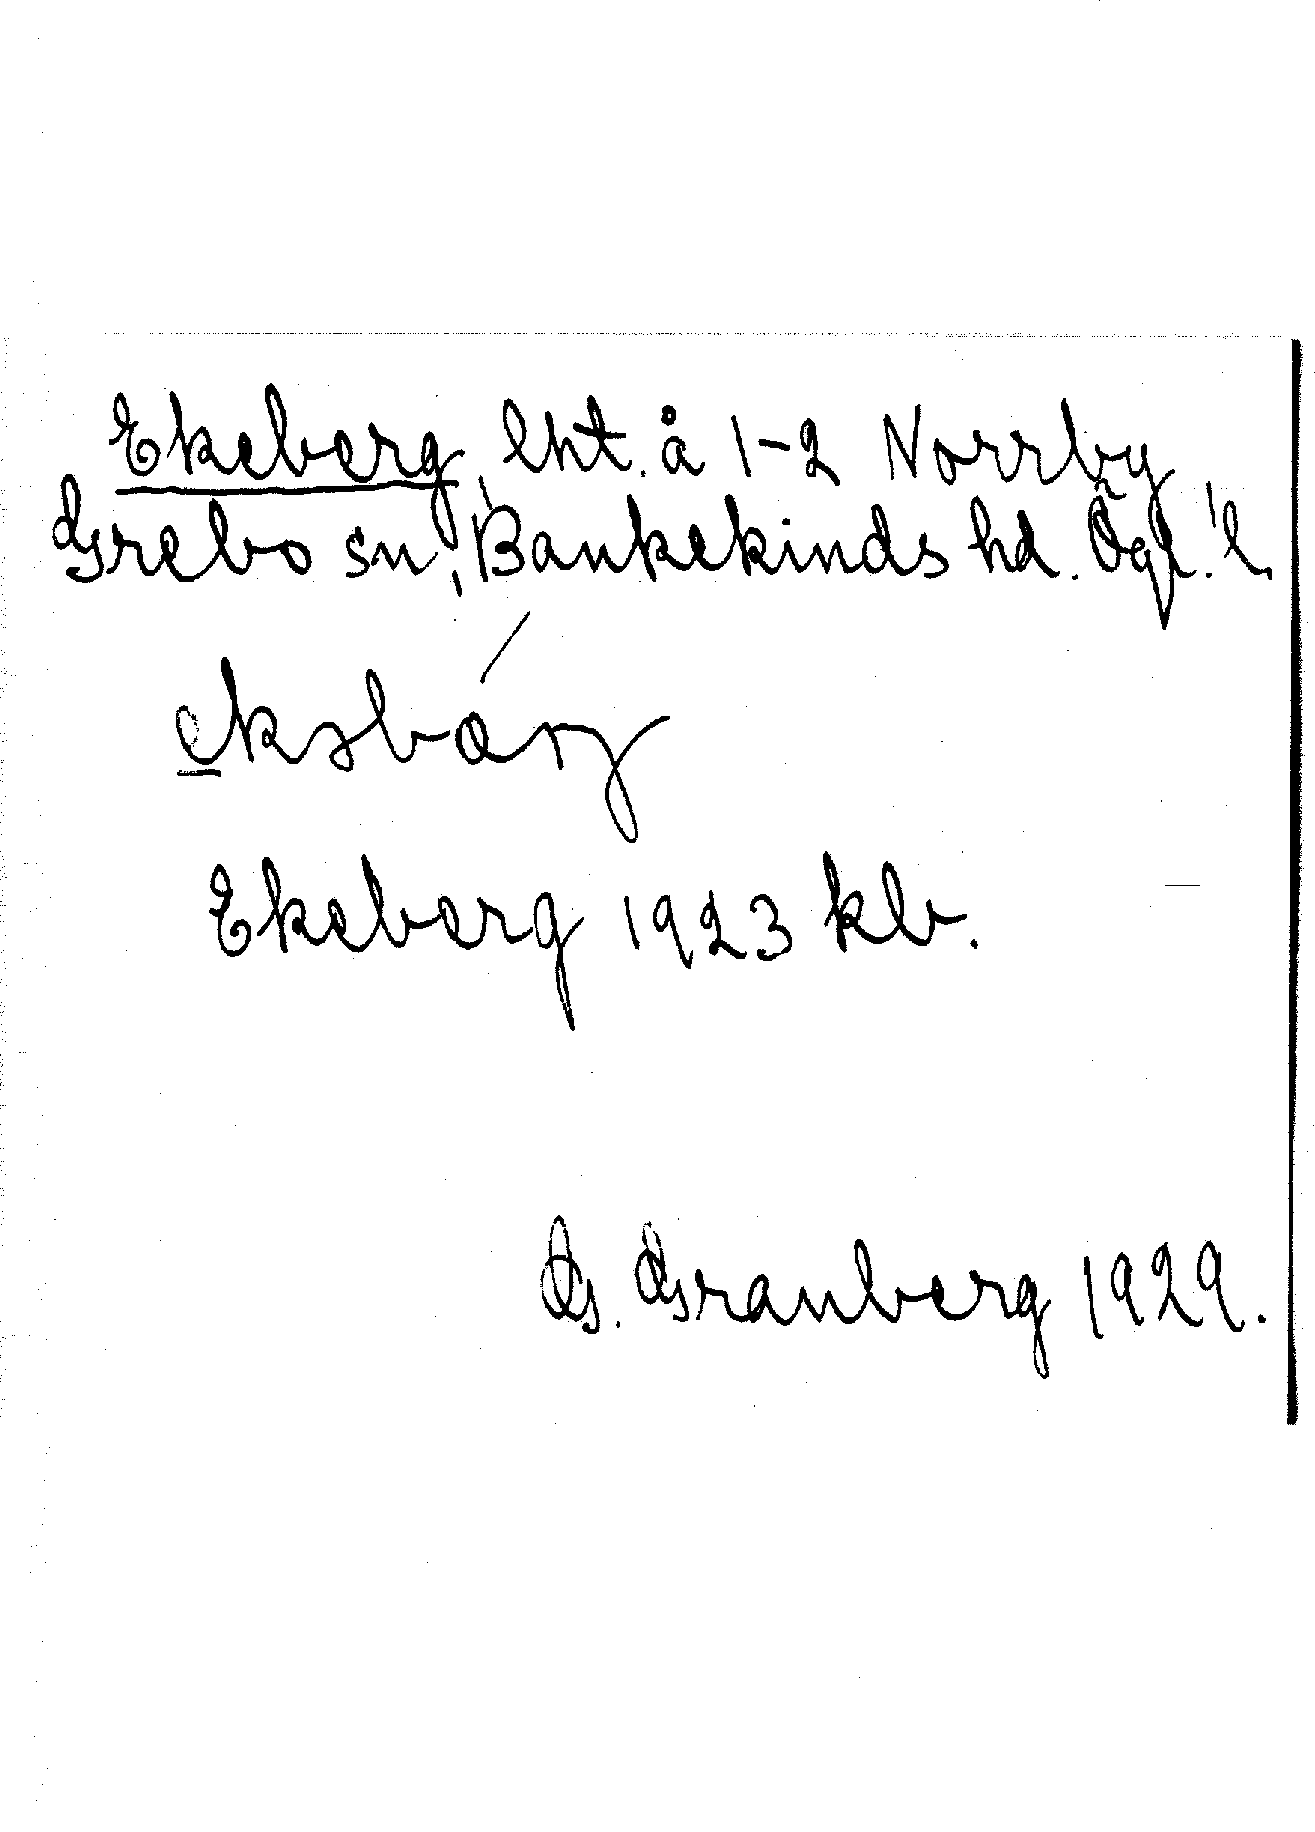 Ekeberg, lht. å 1-2 Norrby,
Grebo sn, Bankekinds hd. Ögl. l.
Ekeberg 1923 kb.
G. Granberg 1929.